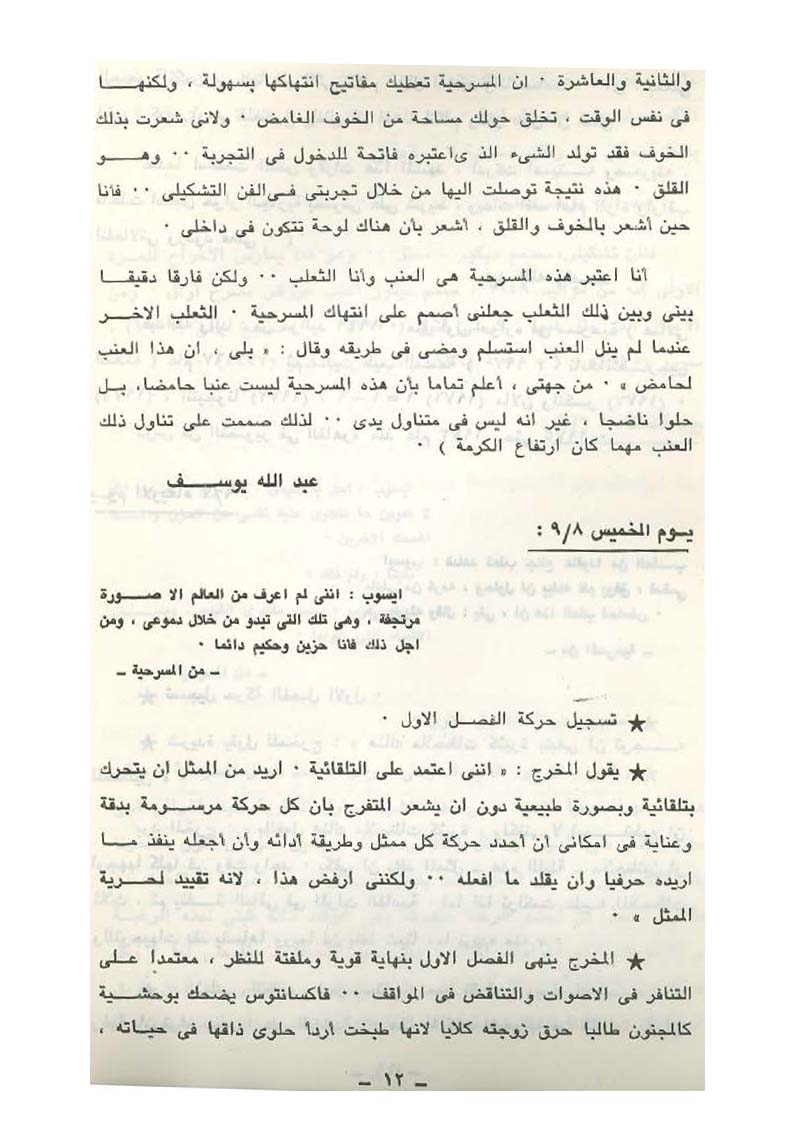 والثانية والعاشرة ٠ ان المسرحية تعطيك مفاتيح انتهاكها بسهولة ، ولكنهـــا
فى نفس الوقت ، تخلق حولك مساحة من الخوف الغامض ٠ ولانى شعرت بذلك
الخوف فقد تولد الشىء الذ ى اعتبره فاتحة للدخول فى التجربة ٠٠ وهـــو
القلق ٠ هذه نتيجة توصلت اليها من خلال تجربتى فى الفن التشكيلى ٠٠ فأنا
حين أشعر بالخوف والقلق ، أشعر بأن هناك لوحة تتكون فى داخلى ٠
أنا اعتبر هذه المسرحية هى العنب وأنا الثعلب ٠٠ ولكن فارقا دقيقـــا
بينى وبين ذلك الثعلب جعلنى أصمم على انتهاك المسرحية ٠ الثعلب الاخـــر
عندما لم ينل العنب استسلم ومضى فى طريقه وقال : « بلى ، ان هذا العنب
لحامض » ٠ من جهتى ، أعلم تماما بأن هذه المسرحية ليست عنبا حامضا، بــل
حلوا ناضجا ، غير انه ليس فى متناول يدى ٠٠ لذلك صممت على تناول ذلك
العنب مهما كان ارتفاع الكرمة ) ٠
عبد الله يوســـف
يـوم الخميس ٩/٨ :
ايسوب : اننى لم اعرف من العالم الا صـــورة
مرتجفة ، وهى تلك التى تبدو من خلال دموعى ، ومن
اجل ذلك فانا حزين وحكيم دائما ٠
ــ من المسرحية ــ
★ تسجيل حركة الفصـــل الاول ٠
★ يقول المخرج : « اننى اعتمد على التلقائية ٠ اريد من الممثل ان يتحرك
بتلقائية وبصورة طبيعية دون ان يشعر المتفرج بان كل حركة مرســـومة بدقة
وعناية فى امكانى أن أحدد حركة كل ممثل وطريقة أدائه وأن أجعله ينفذ مـــا
اريده حرفيا وان يقلد ما افعله ٠٠ ولكننى ارفض هذا ، لانه تقييد لحـــرية
الممثل » ٠
★ المخرج ينهى الفصل الاول بنهاية قوية وملفتة للنظر ، معتمدا علـــى
التنافر فى الاصوات والتناقض فى المواقف ٠٠ فاكسانتوس يضحك بوحشـــية
كالمجنون طالبا حرق زوجته كلايا لانها طبخت أردأ حلوى ذاقها فى حيـــاته ،
ــ ١٢ ــ